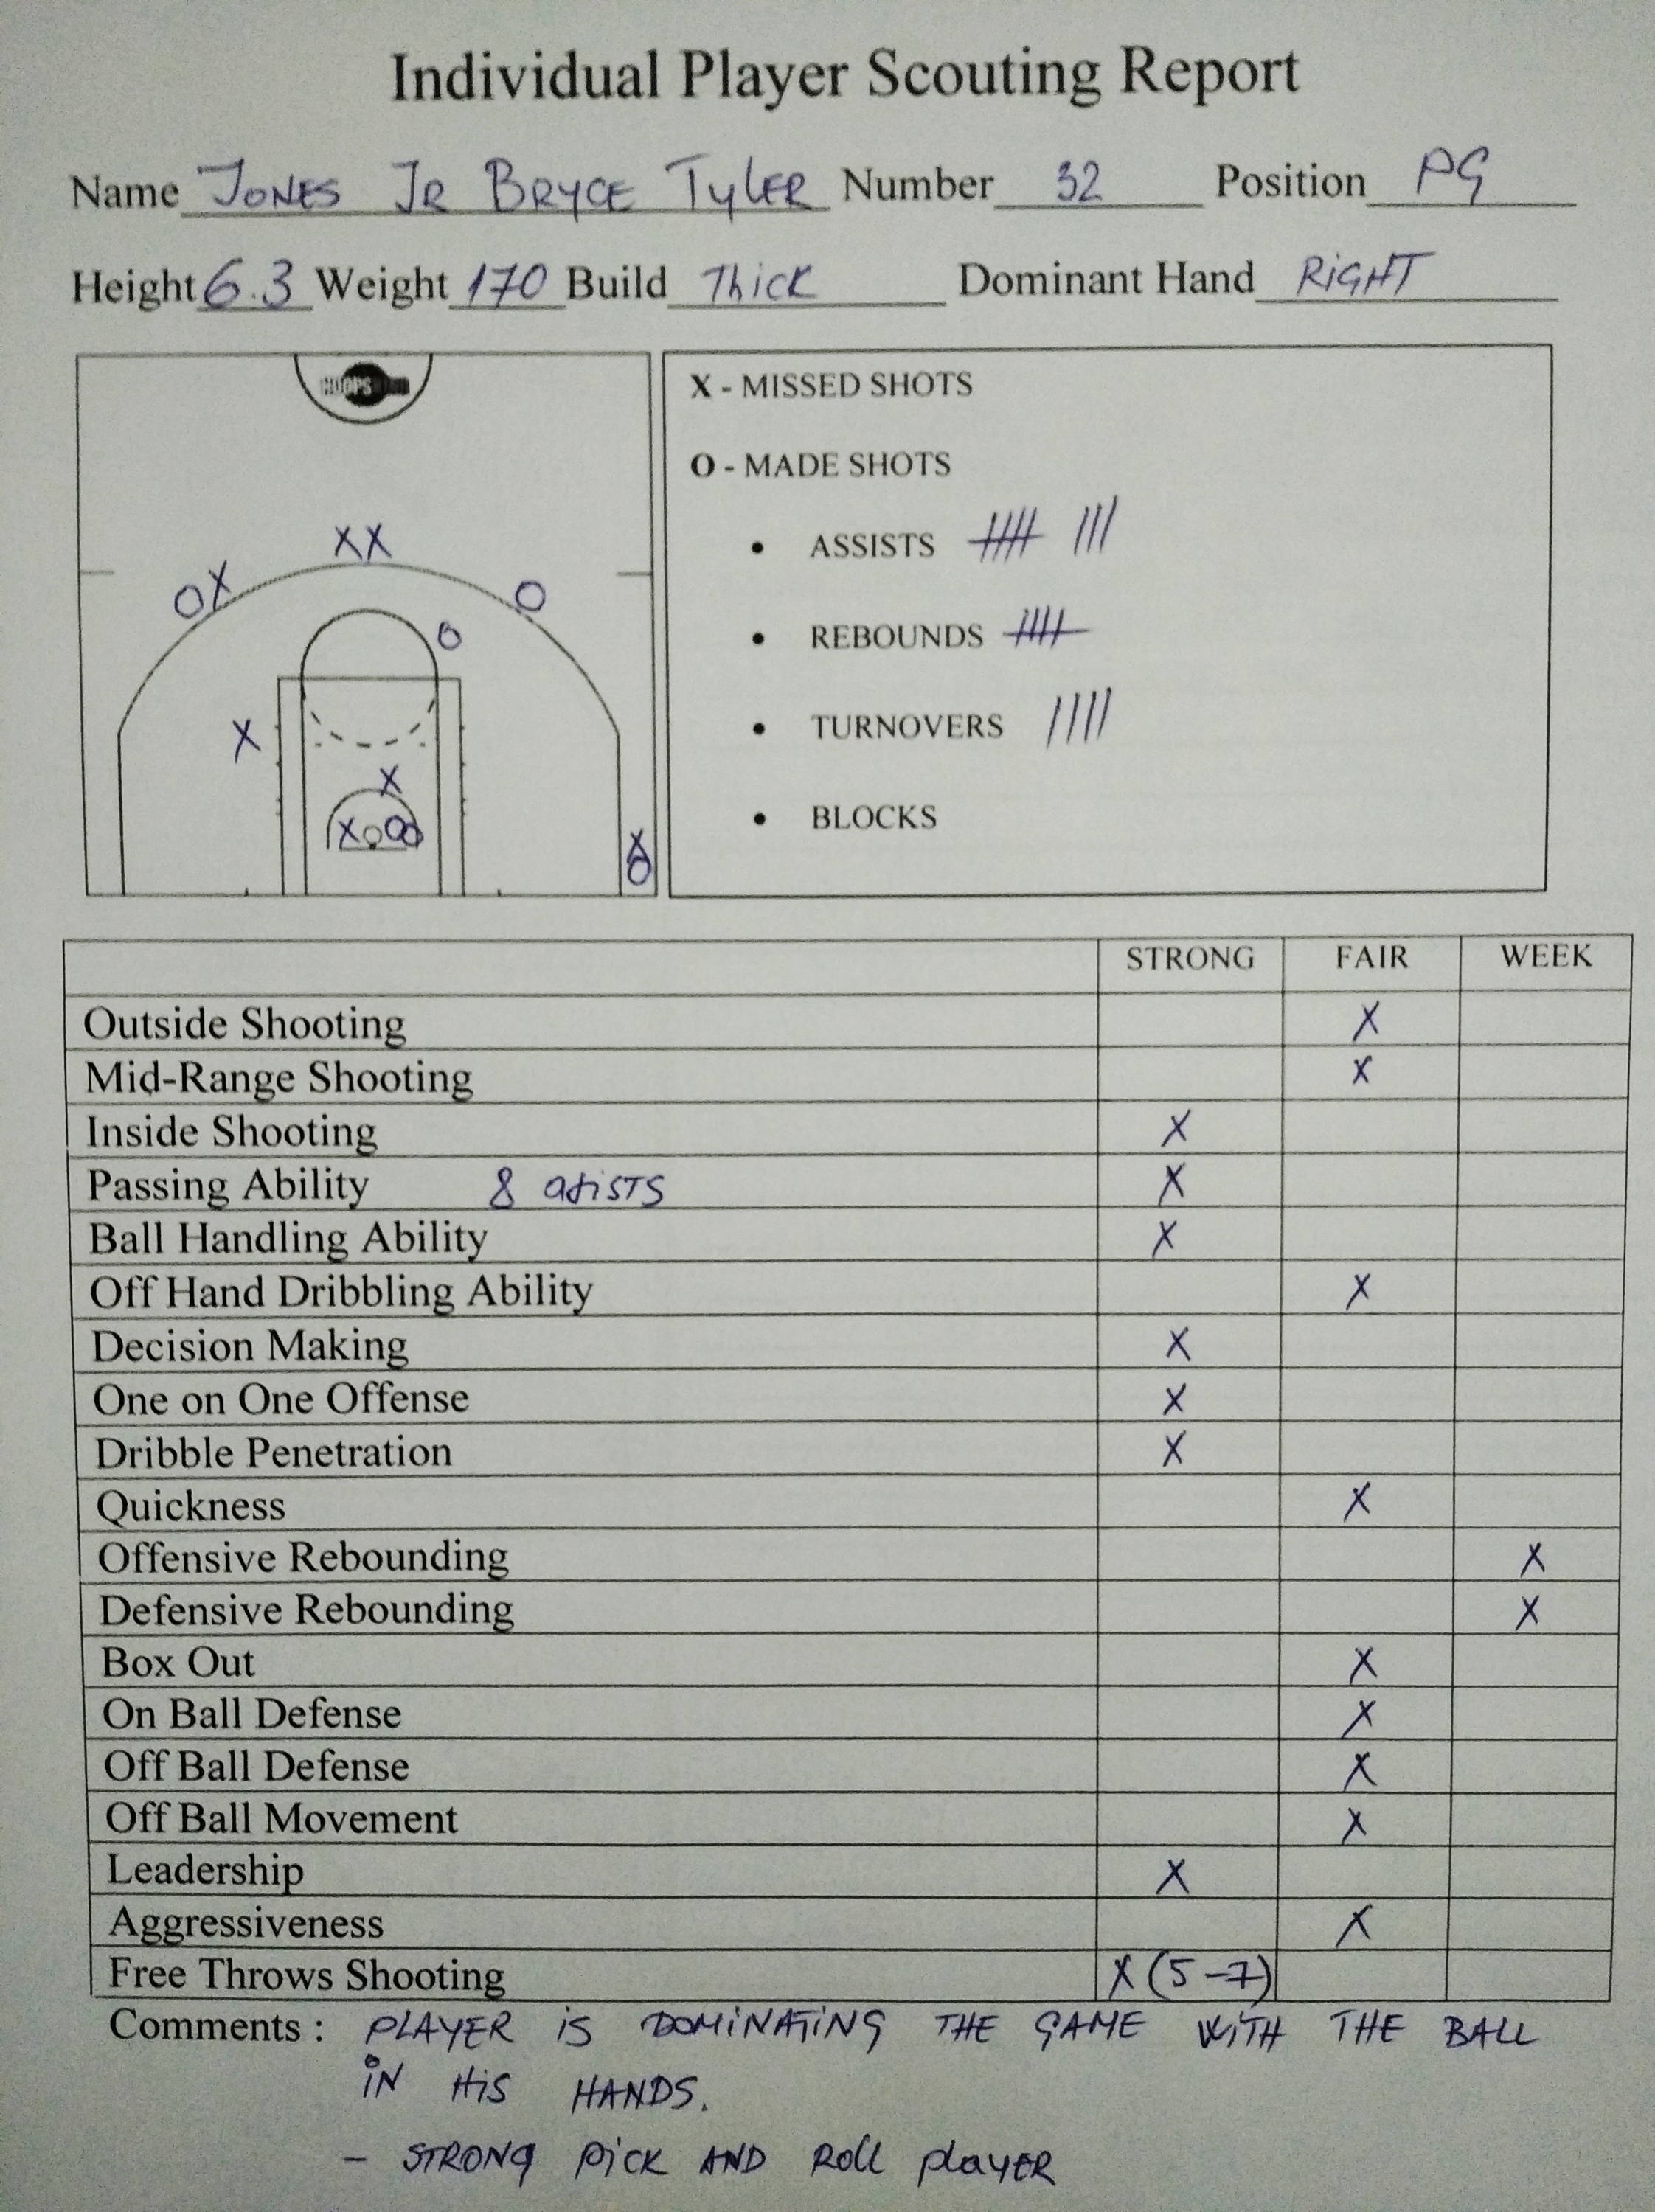 Individual Player Scouting Report
Name JONES JR BRYCE TyLER Number 32 Position PG
Height 6.3 Weight 170 Build Thick Dominant Hand RiGHT
X - MISSED SHOTS
O - MADE SHOTS
• ASSISTS
• REBOUNDS
• TURNOVERS
• BLOCKS
XX
OX
O
O
X
X
X OO
X
O
STRONG FAIR WEEK
Outside Shooting X
Mid-Range Shooting X
Inside Shooting X
Passing Ability 8 X
Ball Handling Ability X
Off Hand Dribbling Ability X
Decision Making X
One on One Offense X
Dribble Penetration X
Quickness X
Offensive Rebounding X
Defensive Rebounding X
Box Out X
On Ball Defense X
Off Ball Defense X
Off Ball Movement X
Leadership X
Aggressiveness X
Free Throws Shooting X (5-7)
Comments : PLAYER iS DOMiNATiNG THE GAME WiTH THE BALL
iN HiS HANDS.
- STRONG PiCK AND Roll playER